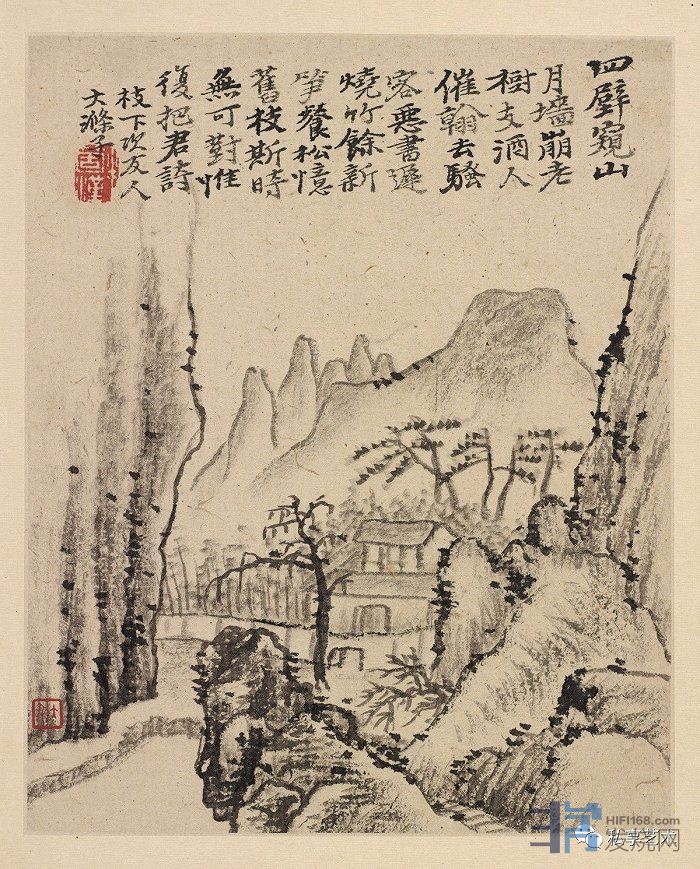 四壁窺山
月墻崩老
樹支酒人
催翰去騷
客惡書遲
燒竹餘新
笋餐松憶
舊枝斯時
無可對惟
復把君詩
枝下次友人
大滌子
HIFI168.com
发烧网
私享艺术